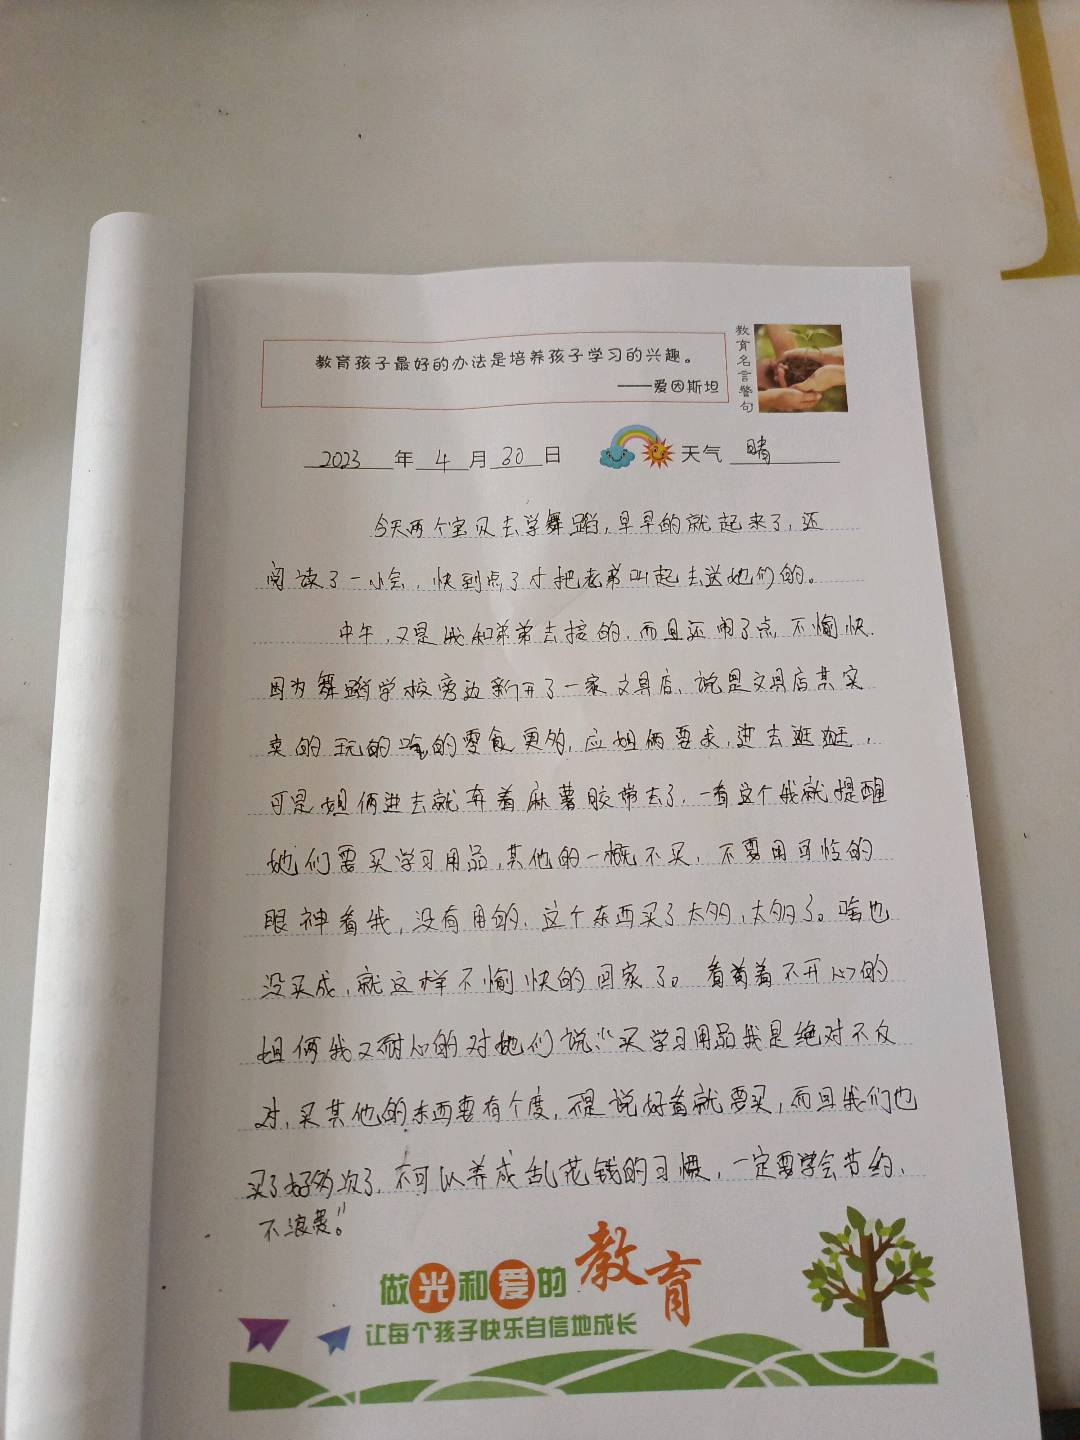 教育孩子最好的办法是培养孩子学习的兴趣。
——爱因斯坦
教育名言警句
2023 年 4 月 30 日 天气 晴
今天两个宝贝去学舞蹈,早早的就起来了,还
阅读了一小会,快到点了才把老弟叫起去送她们的。
中午,又是我和弟弟去接的,而且还闹了点不愉快.
因为舞蹈学校旁边新开了一家文具店,说是文具店其实
卖的玩的啥的零食更多,应姐俩要求,进去逛逛,
可是姐俩进去就奔着麻薯胶带去了,一看这个我就提醒
她们要买学习用品,其他的一概不买,不要用可怜的
眼神看我,没有用的,这个东西买了太多,太多了。啥也
没买成,就这样不愉快的回家了。看着不开心的
姐俩我又耐心的对她们说:“买学习用品我是绝对不反
对,买其他的东西要有个度,不是说好看就要买,而且我们也
买了好多次了,不可以养成乱花钱的习惯,一定要学会节约,
不浪费。”
做光和爱的教育
让每个孩子快乐自信地成长